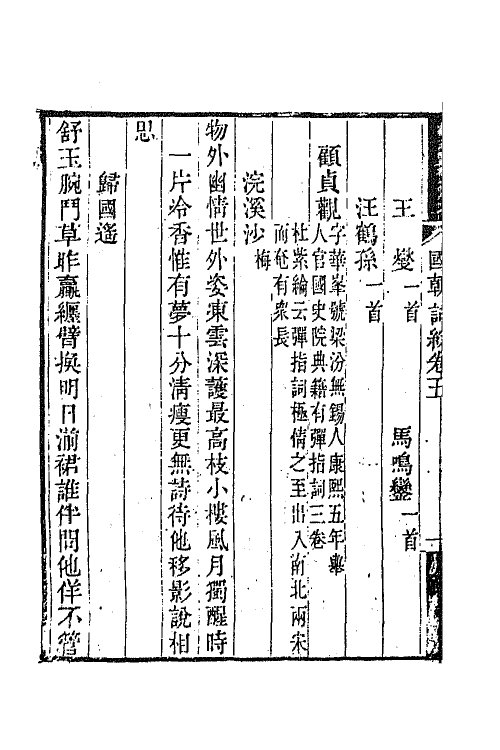 國朝詞綜卷五 一
王 燮一首 馬鳴鑾一首
汪鶴孫一首
顧貞觀字華峯號梁汾無錫人康熙五年舉
人官國史院典籍有彈指詞三卷
杜紫綸云彈指詞極情之至出入南北兩宋
而奄有衆長
浣溪沙梅
物外幽情世外姿東雲深護最高枝小樓風月獨醒時
一片冷香惟有夢十分清瘦更無詩待他移影說相
思
歸國遙
舒玉腕鬥草昨贏纏臂換明日湔裙誰伴問他佯不管